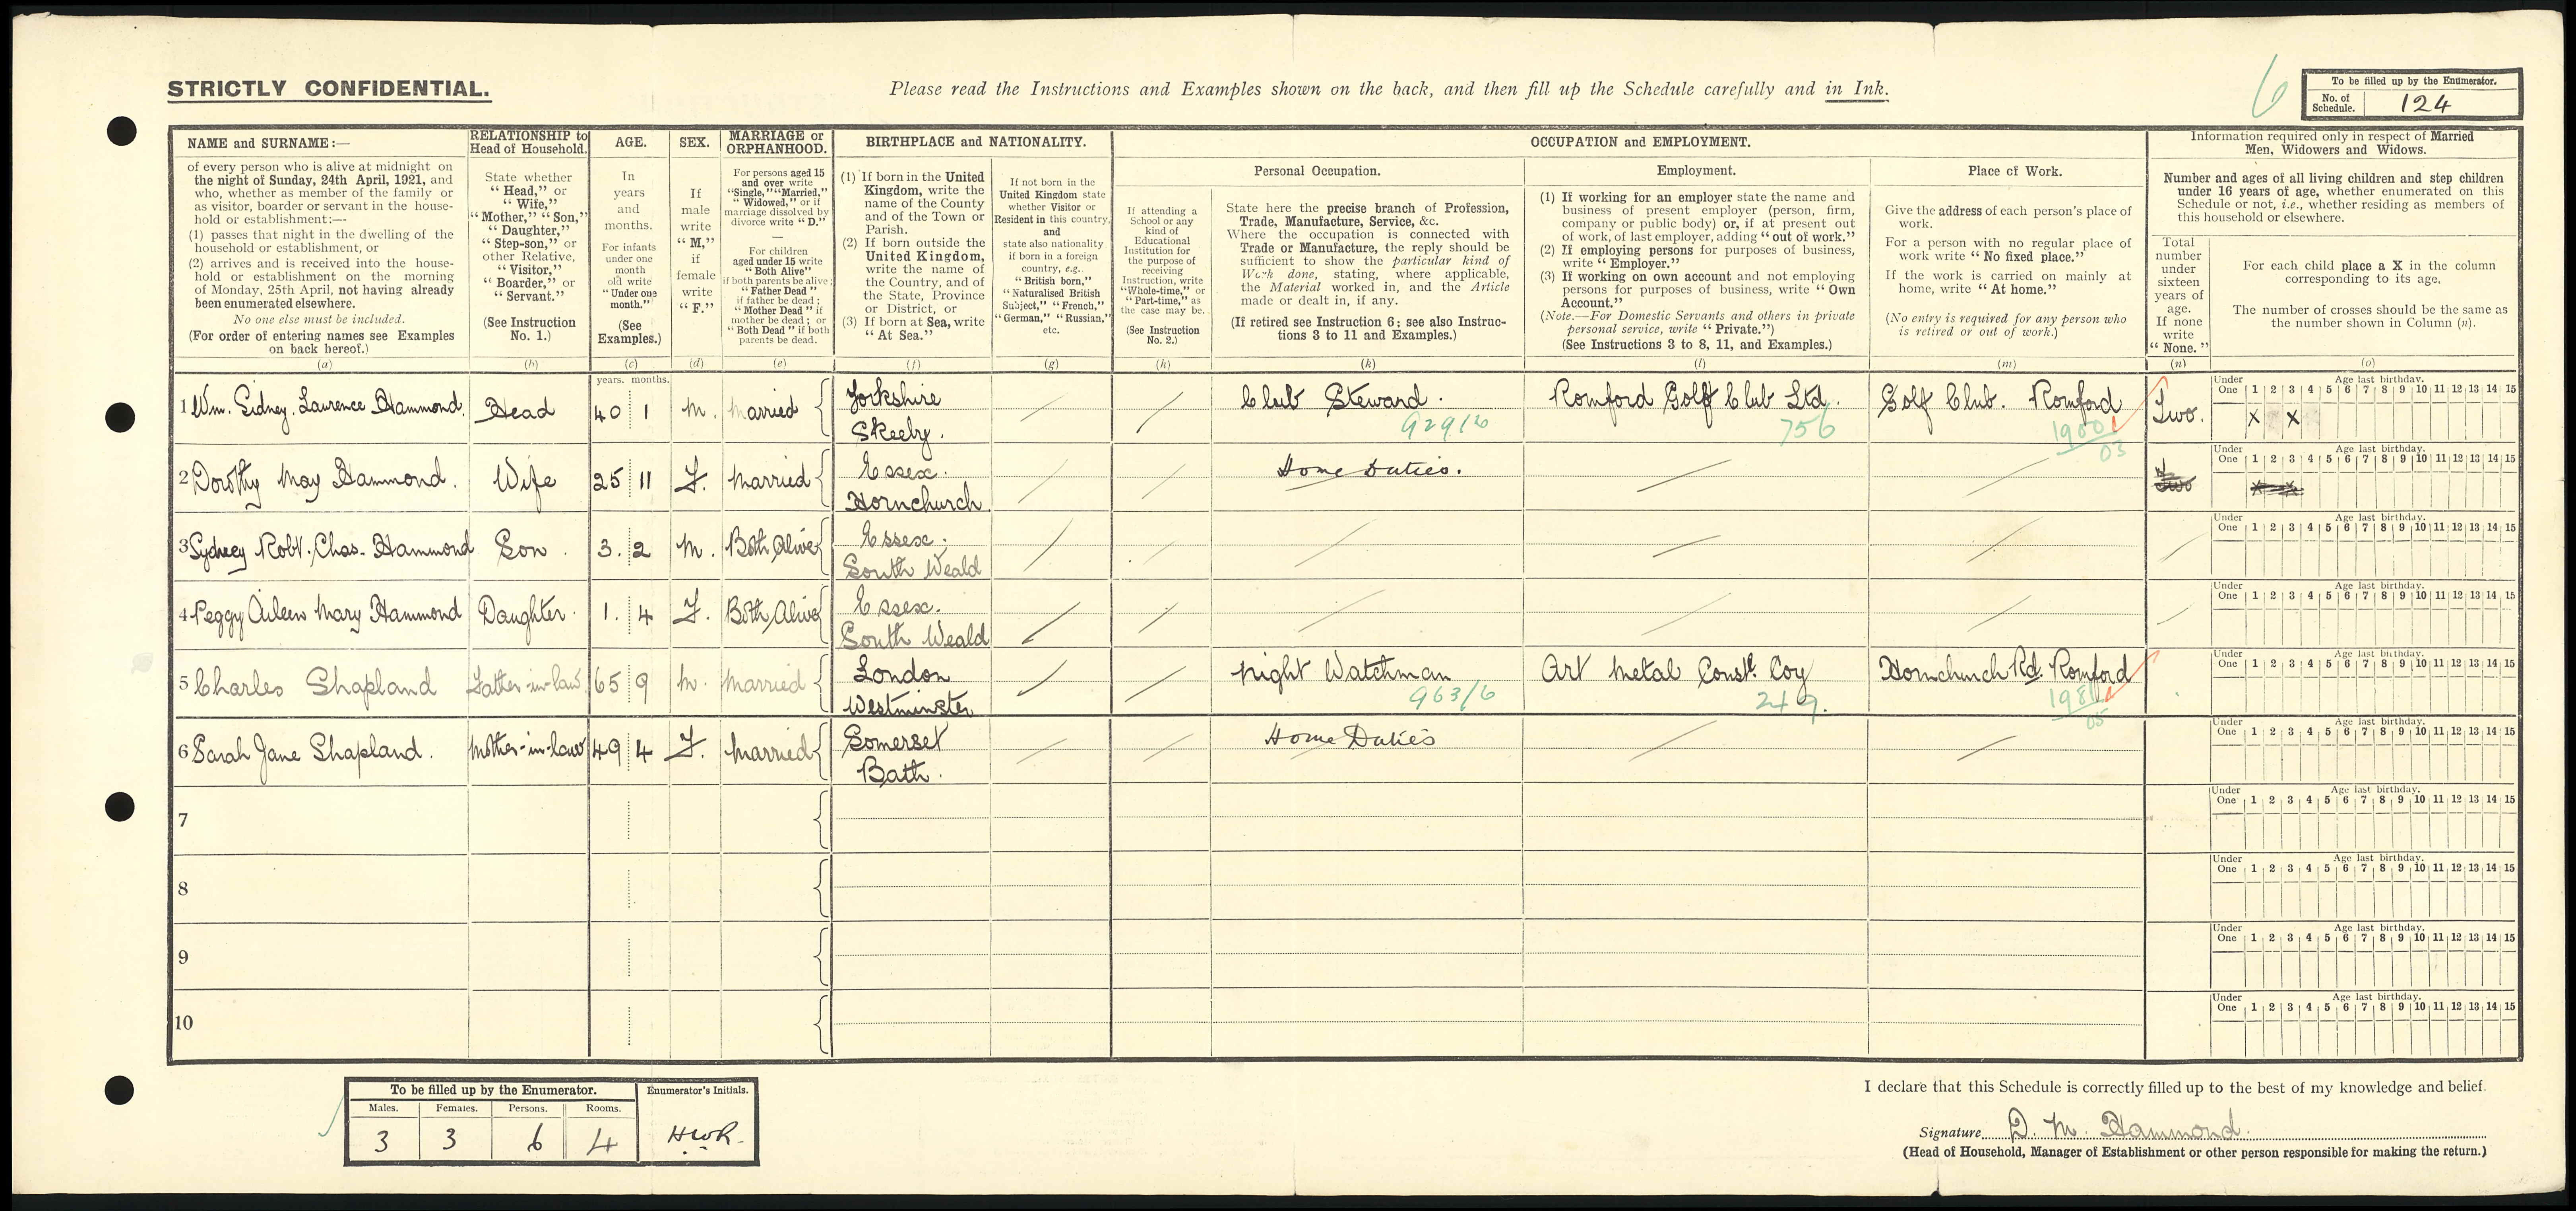 STRICTLY CONFIDENTIAL.
Please read the Instructions and Examples shown on the back, and then fill up the Schedule carefully and in Ink.
6
To be filled up by the Enumerator.
No. of Schedule. 124
NAME and SURNAME:—
of every person who is alive at midnight on
the night of Sunday, 24th April, 1921, and
who, whether as member of the family or
as visitor, boarder or servant in the house-
hold or establishment:—
(1) passes that night in the dwelling of the
household or establishment, or
(2) arrives and is received into the house-
hold or establishment on the morning
of Monday, 25th April, not having already
been enumerated elsewhere.
No one else must be included.
(For order of entering names see Examples
on back hereof.)
(a)
RELATIONSHIP to
Head of Household.
State whether
"Head," or
"Wife,"
"Mother," "Son,"
"Daughter,"
"Step-son," or
other Relative,
"Visitor,"
"Boarder," or
"Servant."
(See Instruction
No. 1.)
(b)
AGE.
In
years
and
months.
For infants
under one
month
old write
"Under one
month."
(See
Examples.)
(c)
SEX.
If
male
write
"M,"
if
female
write
"F."
(d)
MARRIAGE or
ORPHANHOOD.
For persons aged 15
and over write
"Single," "Married,"
"Widowed," or if
marriage dissolved by
divorce write "D."
—
For children
aged under 15 write
"Both Alive"
if both parents be alive;
"Father Dead"
if father be dead;
"Mother Dead" if
mother be dead; or
"Both Dead" if both
parents be dead.
(e)
BIRTHPLACE and NATIONALITY.
(1) If born in the United
Kingdom, write the
name of the County
and of the Town or
Parish.
(2) If born outside the
United Kingdom,
write the name of
the Country, and of
the State, Province
or District, or
(3) If born at Sea, write
"At Sea."
(f)
If not born in the
United Kingdom state
whether Visitor or
Resident in this country,
and
state also nationality
if born in a foreign
country, e.g.
"British born,"
"Naturalised British
Subject," "French,"
"German," "Russian,"
etc.
(g)
OCCUPATION and EMPLOYMENT.
If attending a
School or any
kind of
Educational
Institution for
the purpose of
receiving
Instruction, write
"Whole-time," or
"Part-time," as
the case may be.
(See Instruction
No. 2.)
(h)
Personal Occupation.
State here the precise branch of Profession,
Trade, Manufacture, Service, &c.
Where the occupation is connected with
Trade or Manufacture, the reply should be
sufficient to show the particular kind of
Work done, stating, where applicable,
the Material worked in, and the Article
made or dealt in, if any.
(If retired see Instruction 6; see also Instruc-
tions 3 to 11 and Examples.)
(k)
Employment.
(1) If working for an employer state the name and
business of present employer (person, firm,
company or public body) or, if at present out
of work, of last employer, adding "out of work."
(2) If employing persons for purposes of business,
write "Employer."
(3) If working on own account and not employing
persons for purposes of business, write "Own
Account."
(Note.—For Domestic Servants and others in private
personal service, write "Private.")
(See Instructions 3 to 8, 11, and Examples.)
(l)
Place of Work.
Give the address of each person's place of
work.
For a person with no regular place of
work write "No fixed place."
If the work is carried on mainly at
home, write "At home."
(No entry is required for any person who
is retired or out of work.)
(m)
Information required only in respect of Married
Men, Widowers and Widows.
Number and ages of all living children and step children
under 16 years of age, whether enumerated on this
Schedule or not, i.e., whether residing as members of
this household or elsewhere.
Total
number
under
sixteen
years of
age.
If none
write
"None."
(n)
For each child place a X in the column
corresponding to its age.
The number of crosses should be the same as
the number shown in Column (n).
(o)
years. months.
1 Wm. Sidney. Laurence Hammond. Head 40 1 M. Married Yorkshire Skeeby. Club Steward. 929/6 Romford Golf Club Ltd. 756 Golf Club. Romford Two. X X
Under One 1 2 3 4 5 6 7 8 9 10 11 12 13 14 15
Age last birthday.
2 Dorothy May Hammond. Wife 25 11 F. Married Essex. Hornchurch Home Duties.
Under One 1 2 3 4 5 6 7 8 9 10 11 12 13 14 15
Age last birthday.
3 Sydney Robt. Chas. Hammond Son. 3. 2 M. Both Alive Essex. South Weald
Under One 1 2 3 4 5 6 7 8 9 10 11 12 13 14 15
Age last birthday.
4 Peggy Aileen Mary Hammond Daughter. 1. 4 F. Both Alive Essex. South Weald
Under One 1 2 3 4 5 6 7 8 9 10 11 12 13 14 15
Age last birthday.
5 Charles Shapland Father-in-law 65 9 M. Married London Westminster Night Watchman 963/6 Art Metal Constn. Coy 249. Hornchurch Rd. Romford
Under One 1 2 3 4 5 6 7 8 9 10 11 12 13 14 15
Age last birthday.
6 Sarah Jane Shapland. Mother-in-law 49 4 F. Married Somerset Bath. Home Duties
Under One 1 2 3 4 5 6 7 8 9 10 11 12 13 14 15
Age last birthday.
7
Under One 1 2 3 4 5 6 7 8 9 10 11 12 13 14 15
Age last birthday.
8
Under One 1 2 3 4 5 6 7 8 9 10 11 12 13 14 15
Age last birthday.
9
Under One 1 2 3 4 5 6 7 8 9 10 11 12 13 14 15
Age last birthday.
10
Under One 1 2 3 4 5 6 7 8 9 10 11 12 13 14 15
Age last birthday.
To be filled up by the Enumerator.
Males. Females. Persons. Rooms.
3 3 6 4
Enumerator's Initials.
HWR.
I declare that this Schedule is correctly filled up to the best of my knowledge and belief.
Signature D. M. Hammond.
(Head of Household, Manager of Establishment or other person responsible for making the return.)